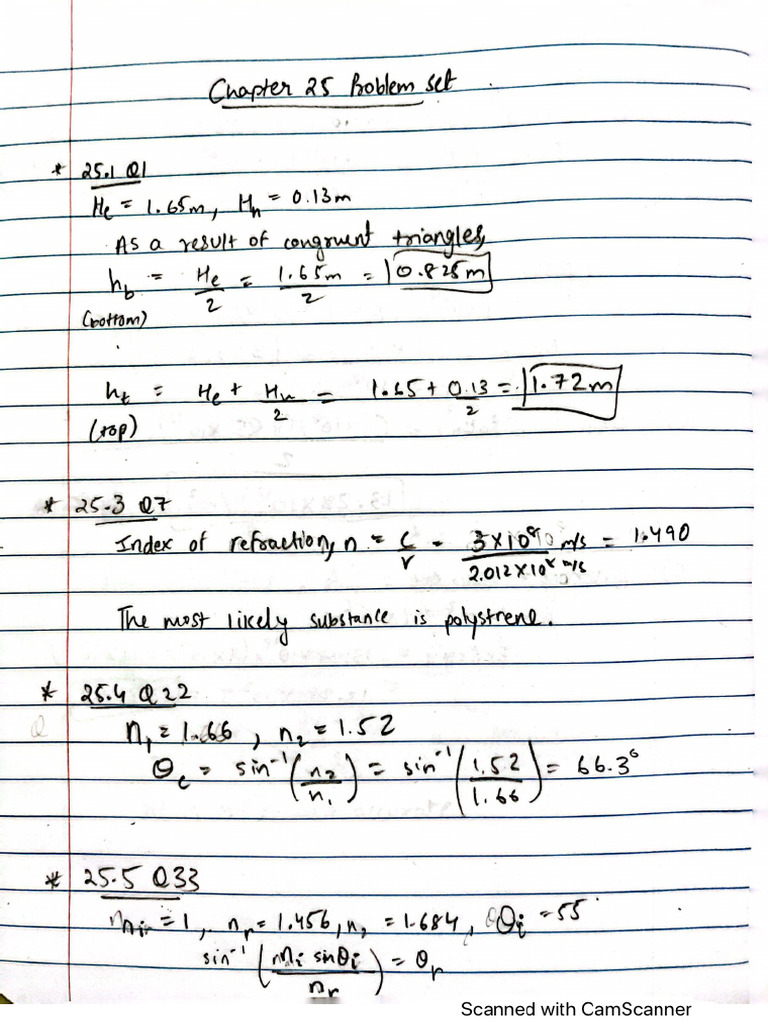 Chapter 25 Problem set
* 25.1 Q1
He = 1.65m, Hn = 0.13m
As a result of congruent triangles,
hb = He/2 = 1.65m/2 = 0.825m
(bottom)
ht = He + Hn/2 = 1.65 + 0.13/2 = 1.72m
(top)
* 25.3 Q7
Index of refraction, n = c/v = 3×10⁸ m/s / 2.012×10⁸ m/s = 1.490
The most likely substance is polystrene.
* 25.4 Q22
n₁ = 1.66, n₂ = 1.52
θc = sin⁻¹(n₂/n₁) = sin⁻¹(1.52/1.66) = 66.3°
* 25.5 Q33
= 1, nr = 1.456, = 1.684, θi = 55
sin⁻¹(ni sinθi/nr) = θr
Scanned with CamScanner